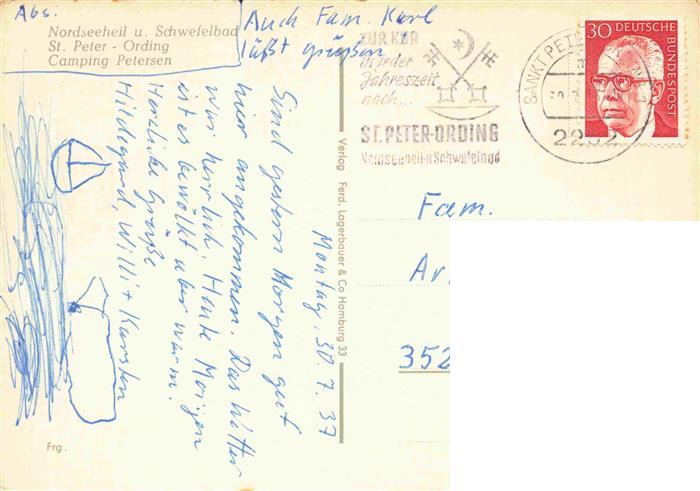 Abs:
Nordseeheil u. Schwefelbad
St. Peter - Ording
Camping Petersen
Auch Fam. Karl
läßt grüßen
Montag, 30.7.37
Sind gestern Morgen gut
hier angekommen. Das Wetter
war herrlich. Heute Morgen
ist es bewölkt aber warm.
Herzliche Grüße
Hildegard, Willi + Karsten
Frg.
Verlag Ferd. Lagerbauer & Co Hamburg 33
ZUR KUR
in jeder
Jahreszeit
nach...
ST. PETER-ORDING
Nordseeheil-u Schwefelbad
SANKT PETER
2252
30
DEUTSCHE
BUNDESPOST
Fam.
Ar
352